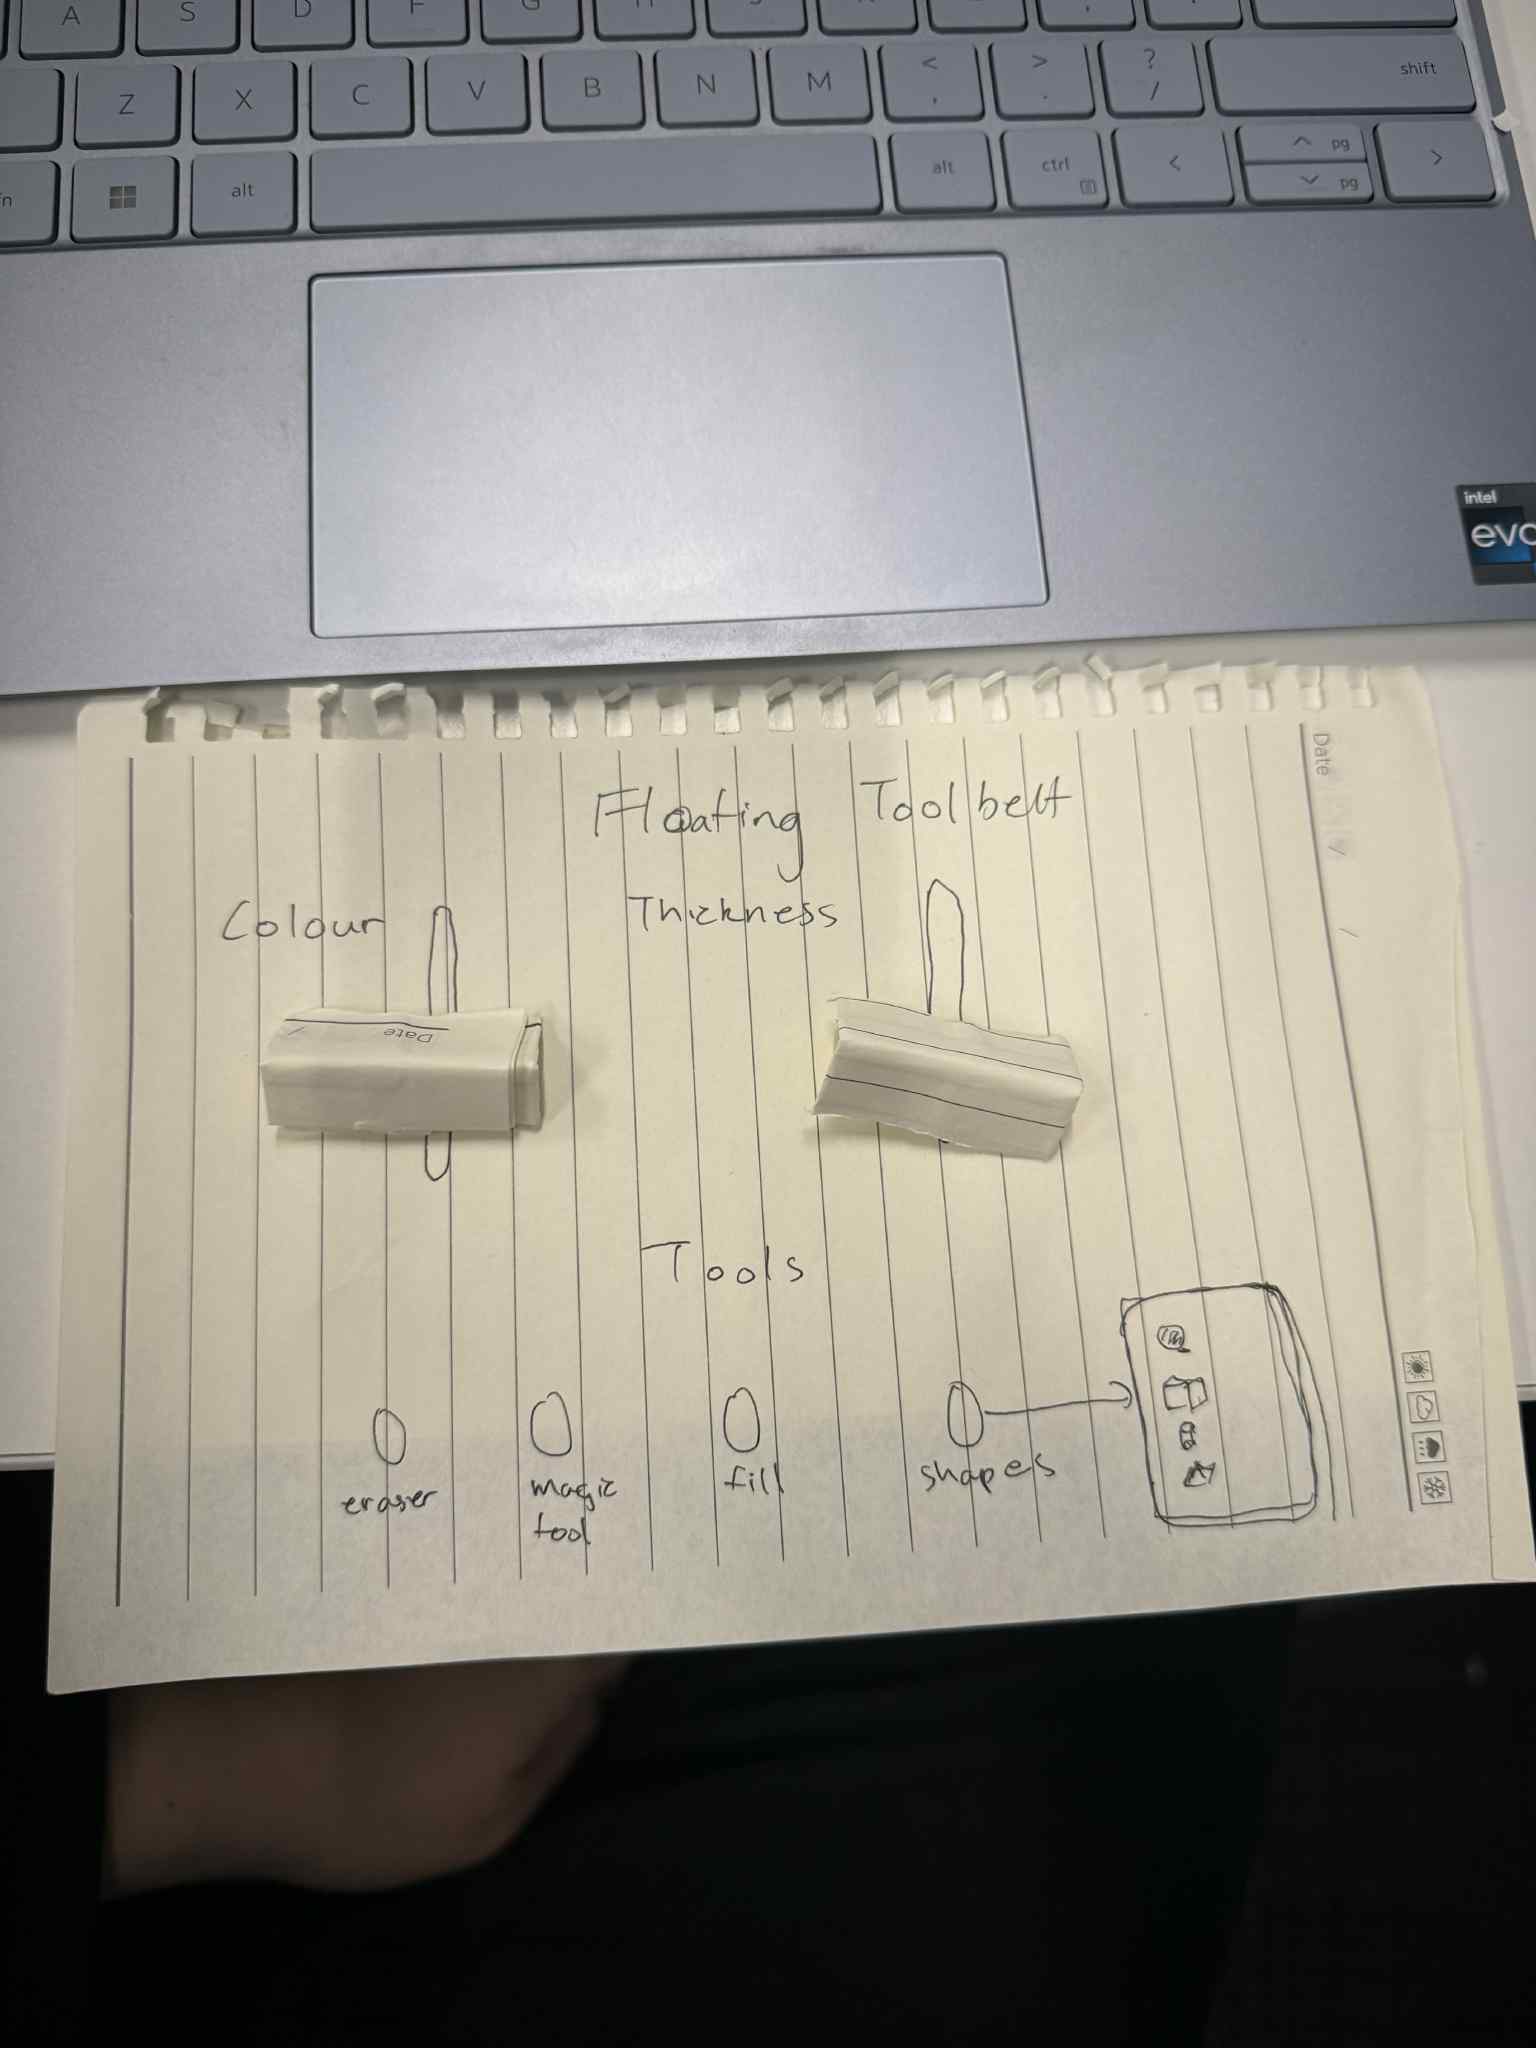 A S D F G H J K L
Z X C V B N M < , > . ? / shift
fn alt alt ctrl < ^ pg >
pg
intel
evo
Date
Floating Toolbelt
Colour Thickness
Date
Tools
eraser magic tool fill shapes